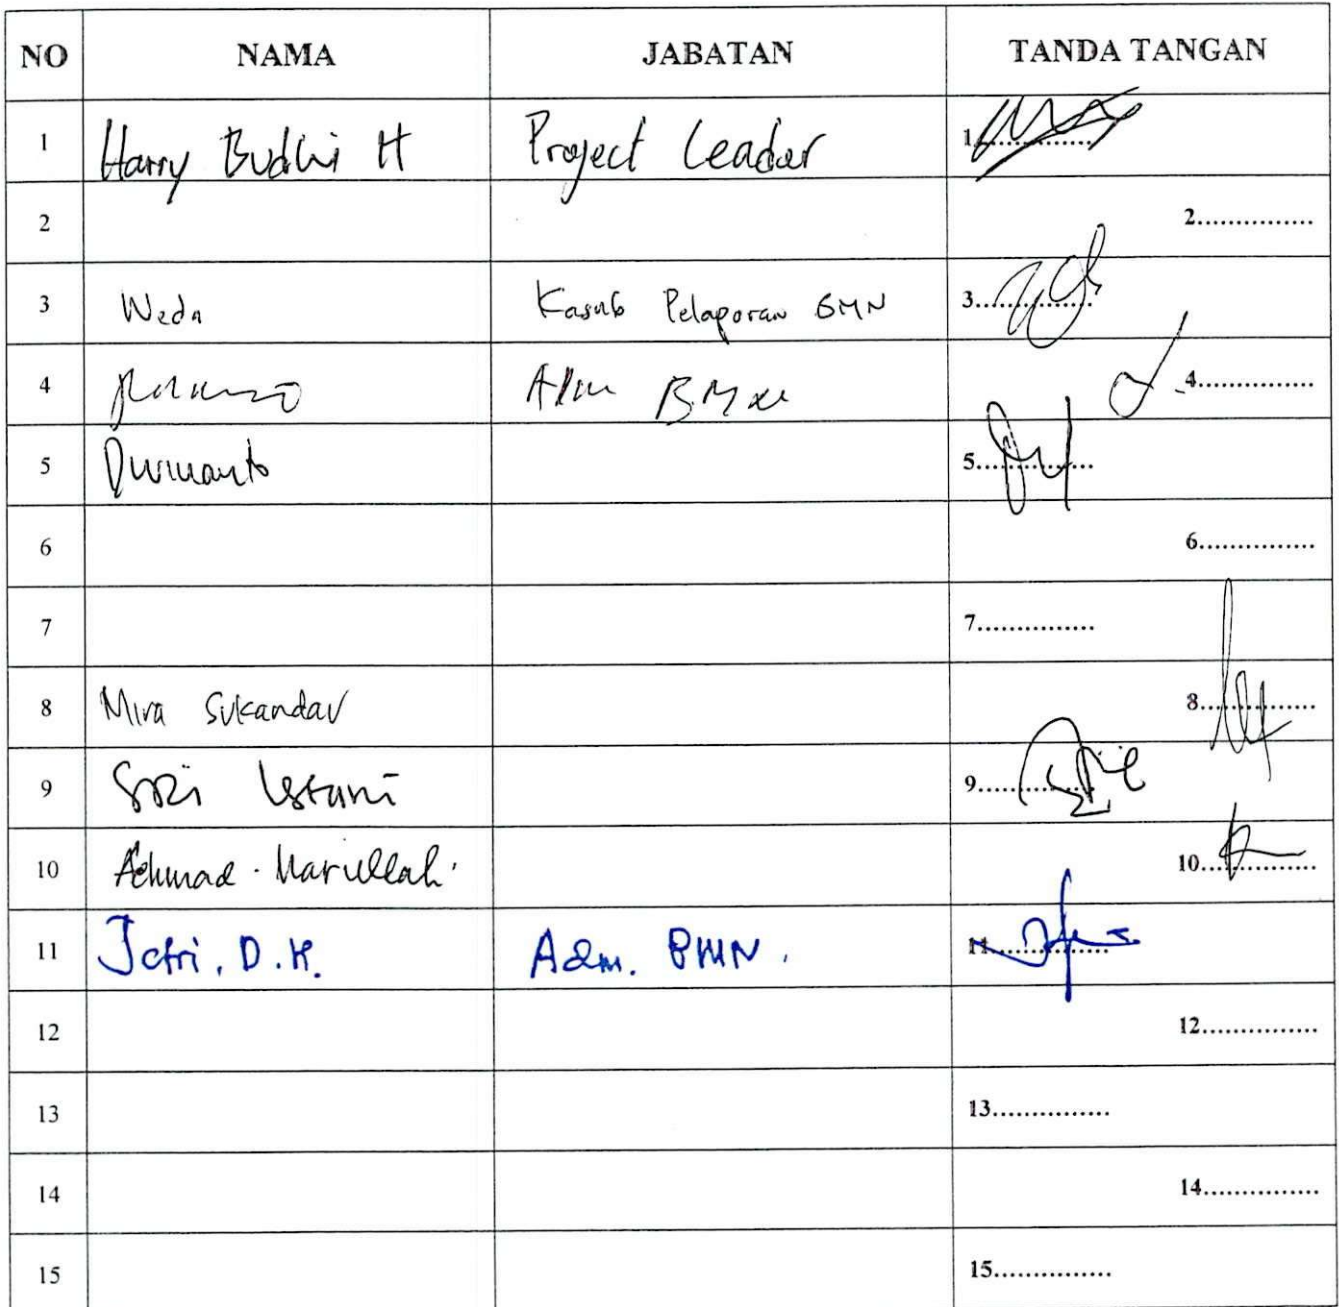 NO NAMA JABATAN TANDA TANGAN
1 Harry Budhi H Project Leader 1...............
2 2...............
3 Weda Kasub Pelaporan BMN 3...............
4 4...............
5 Purwanto 5...............
6 6...............
7 7...............
8 Mira Sukandar 8...............
9 Sri Lestari 9...............
10 Achmad 10...............
11 Jefri. D.K. Adm. BMN. 11...............
12 12...............
13 13...............
14 14...............
15 15...............